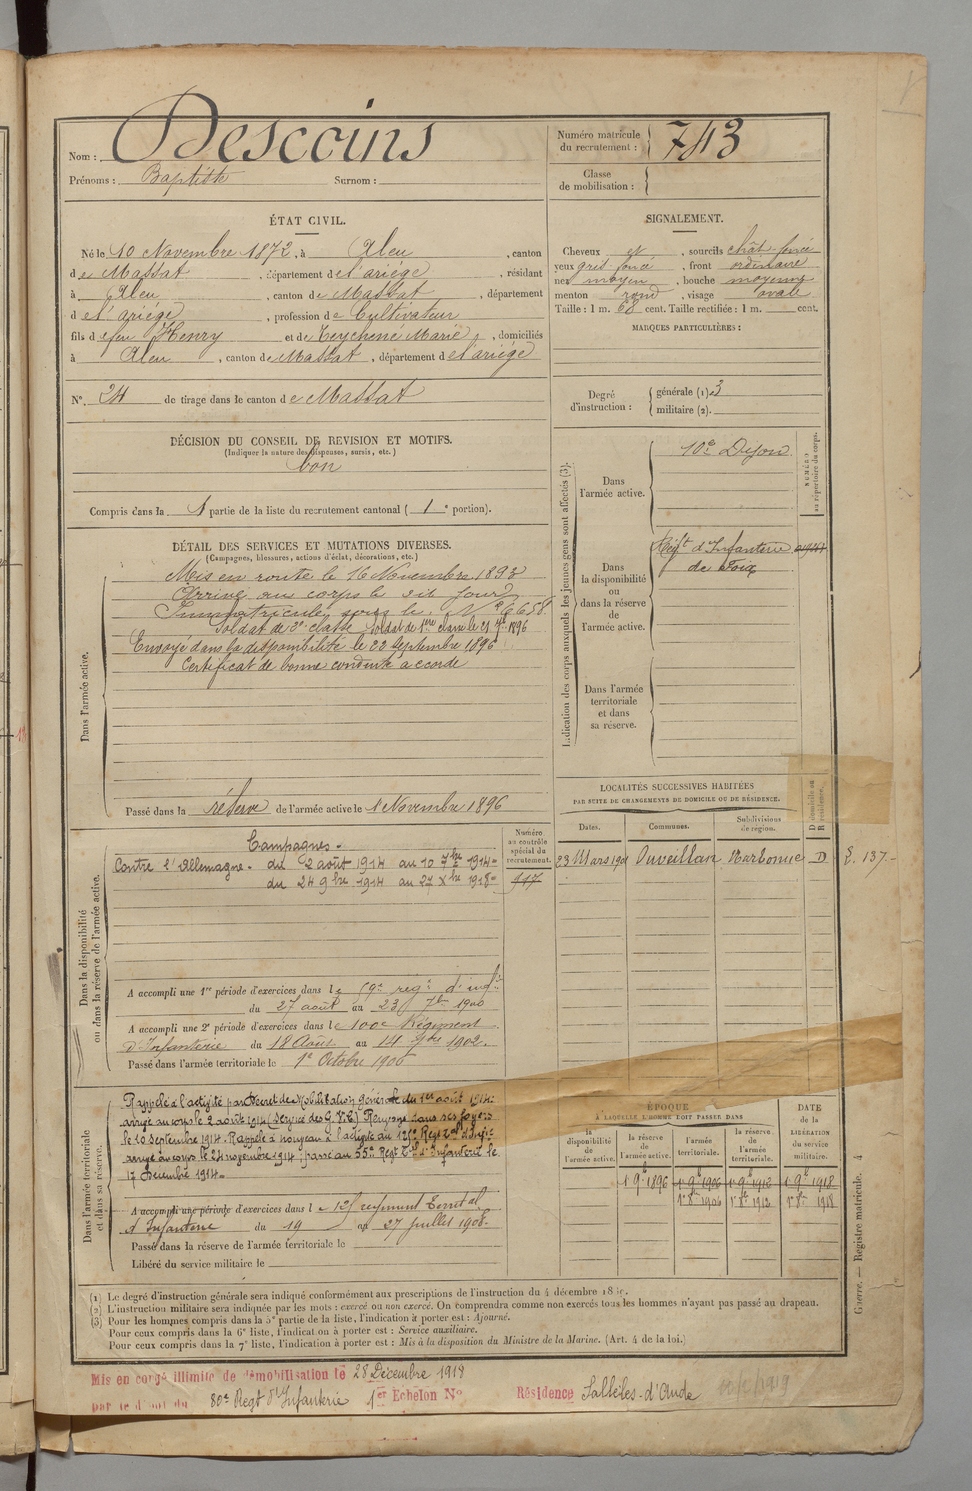 Nom : Descoins
Prénoms : Baptiste Surnom :
Numéro matricule du recrutement : 743
Classe de mobilisation :
ÉTAT CIVIL.
Né le 10 Novembre 1872, à Aleu, canton
de Massat, département de l'ariége, résidant
à Aleu, canton de Massat, département
de l'ariége, profession de Cultivateur
fils de feu Henry et de Teychené Marie, domiciliés
à Aleu, canton de Massat, département de l'ariége
N° 24 de tirage dans le canton de Massat
DÉCISION DU CONSEIL DE REVISION ET MOTIFS.
(Indiquer la nature des dispenses, sursis, etc.)
bon
Compris dans la 1 partie de la liste du recrutement cantonal ( 1 e portion).
SIGNALEMENT.
Cheveux et, sourcils chât. foncé
yeux gris foncé, front ordinaire
nez moyen, bouche moyenne
menton rond, visage ovale
Taille : 1 m. 68 cent. Taille rectifiée : 1 m. cent.
MARQUES PARTICULIÈRES :
Degré d'instruction : générale (1) 3
militaire (2).
DÉTAIL DES SERVICES ET MUTATIONS DIVERSES.
(Campagnes, blessures, actions d'éclat, décorations, etc.)
Dans l'armée active.
Mis en route le 16 Novembre 1893
Arrivé au corps le dit jour
Immatriculé sous le N° 6658
Soldat de 2e classe Soldat de 1ère classe le 21 1896
Envoyé dans la disponibilité le 22 Septembre 1896
Certificat de bonne conduite accordé
Passé dans la réserve de l'armée active le 1 Novembre 1896
Indication des corps auxquels les jeunes gens sont affectés (3).
NUMÉRO au répertoire du corps.
Dans l'armée active.
10e Dijon
Dans la disponibilité ou dans la réserve de l'armée active.
Régt d'Infanterie
de Foix
Dans l'armée territoriale et dans sa réserve.
LOCALITÉS SUCCESSIVES HABITÉES
PAR SUITE DE CHANGEMENTS DE DOMICILE OU DE RÉSIDENCE.
Dates. Communes. Subdivisions de région.
23 Mars 1901 Ouveillan Narbonne D
137.
Dans la disponibilité ou dans la réserve de l'armée active.
Numéro au contrôle spécial du recrutement.
117
Campagnes.
Contre l'Allemagne. du 2 août 1914 au 10 7bre 1914
du 24 9bre 1914 au 27 Xbre 1918
A accompli une 1re période d'exercices dans le 59e regt d'infie
du 27 août au 23 7bre 1900
A accompli une 2e période d'exercices dans le 100e Régiment
d'Infanterie du 18 Août au 14 7bre 1902.
Passé dans l'armée territoriale le 1e Octobre 1906
Dans l'armée territoriale et dans sa réserve.
Rappelé à l'activité par Décret de Mobilisation générale du 1er août 1914.
arrivé au corps le 2 août 1914 (Service des G.V.C.) Renvoyé dans ses foyers
le 10 septembre 1914. Rappelé à nouveau à l'activité au 125e Regt Tal d'Infie
arrivé au corps le 24 novembre 1914, passé au 55e Regt Tal d'Infanterie le
17 Décembre 1914.
A accompli une période d'exercices dans le 125 régiment Territal
d'Infanterie du 19 au 27 Juillet 1908.
Passé dans la réserve de l'armée territoriale le
Libéré du service militaire le
ÉPOQUE
A LAQUELLE L'HOMME DOIT PASSER DANS
DATE de la LIBÉRATION du service militaire.
la disponibilité de l'armée active. la réserve de l'armée active. l'armée territoriale. la réserve de l'armée territoriale.
1 9e 1896 1e 9e 1906 1e 9e 1912 1e 9e 1918
1e 8e 1906 1e 8e 1912 1e 8e 1918
(1) Le degré d'instruction générale sera indiqué conformément aux prescriptions de l'instruction du 4 décembre
(2) L'instruction militaire sera indiquée par les mots : exercé ou non exercé. On comprendra comme non exercés tous les hommes n'ayant pas passé au drapeau.
(3) Pour les hommes compris dans la 5e partie de la liste, l'indication à porter est : Ajourné.
Pour ceux compris dans la 6e liste, l'indication à porter est : Service auxiliaire.
Pour ceux compris dans la 7e liste, l'indication à porter est : Mis à la disposition du Ministre de la Marine. (Art. 4 de la loi.)
Guerre. — Registre matricule. 4
Mis en congé illimité de démobilisation le 28 Décembre 1918
80e Regt d'Infanterie 1er Echelon N° Résidence Sallèles-d'Aude